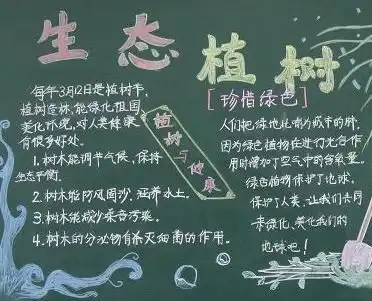 生态植树
每年3月12日是植树节,
植树造林,能绿化祖国,
美化环境,对人类健康
有很多好处。
1.树木能调节气候,保持
生态平衡.
2.树木能防风固沙,涵养水土.
3.树木能减少噪音污染.
4.树木的分泌物有杀灭细菌的作用.
植树与健康
[珍惜绿色]
人们把绿地比喻为城市的肺,
因为绿色植物在进行光合作
用时增加了空气中的含氧量.
绿色植物保护了地球,
保护了人类,让我们共同
来绿化、美化我们的
地球吧!